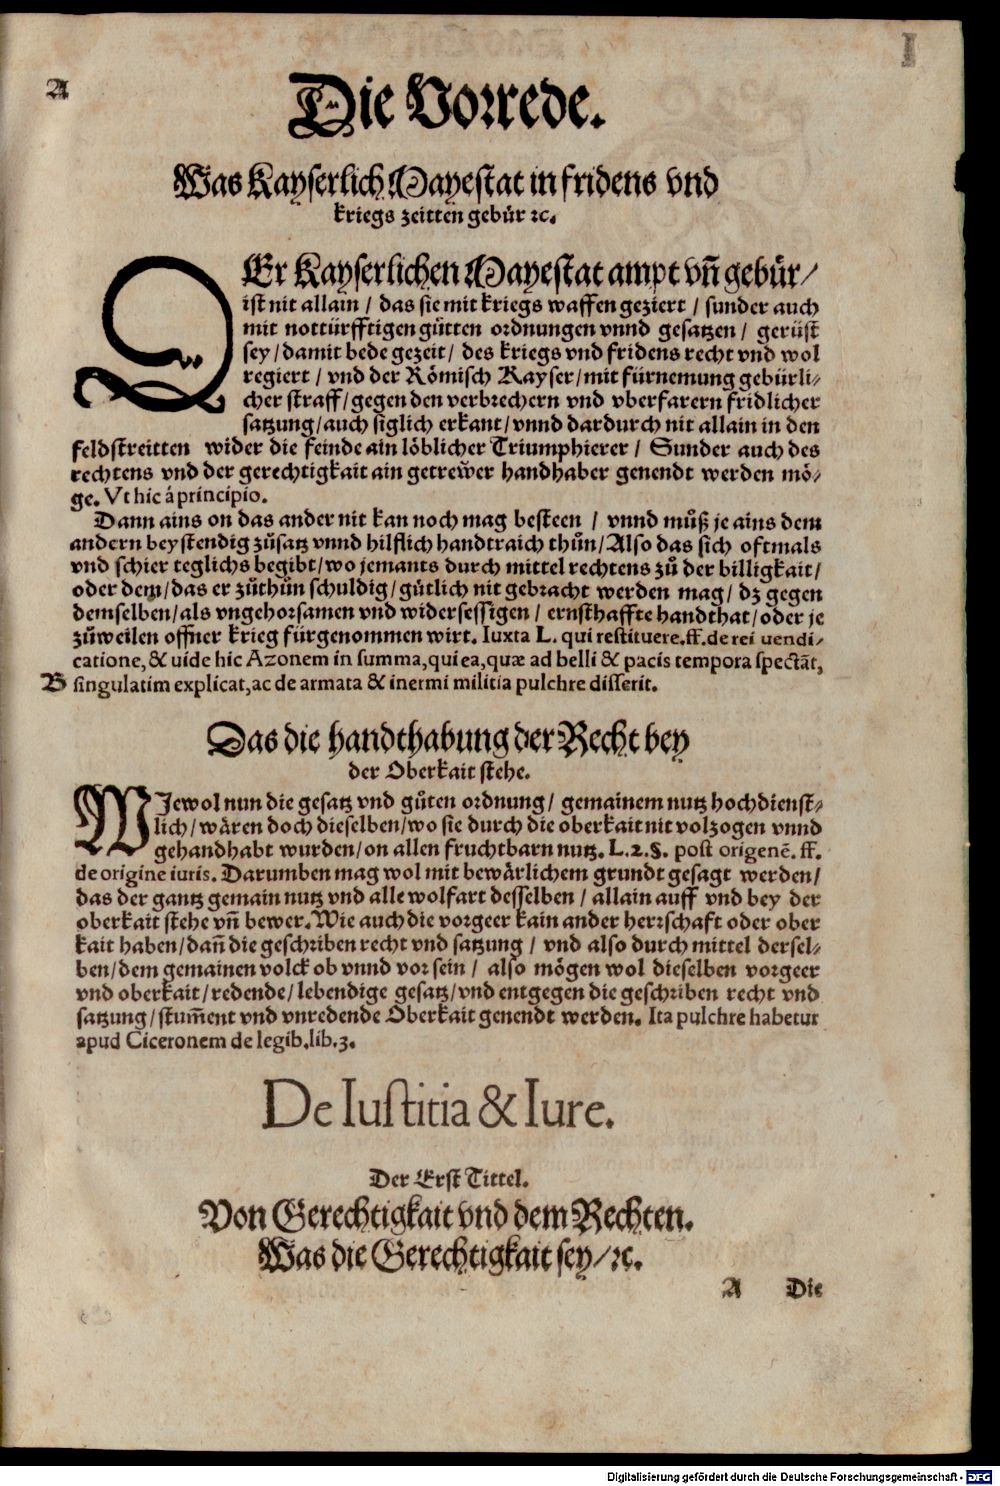 I
A
Die Vorrede.
Was Kayserlich Mayestat in fridens vnd
kriegs zeitten gebür ꝛc.
DEr Kayserlichen Mayestat ampt vñ gebür/
ist nit allain / das sie mit kriegs waffen geziert / sunder auch
mit nottürfftigen gůtten ordnungen vnnd gesatzen / gerüst
sey / damit bede gezeit / des kriegs vnd fridens recht vnd wol
regiert / vnd der Römisch Kayser / mit fürnemung gebürli⸗
cher straff / gegen den verbrechern vnd vberfarern fridlicher
satzung / auch siglich erkant / vnnd dardurch nit allain in den
feldstreitten wider die feinde ain löblicher Triumphierer / Sunder auch des
rechtens vnd der gerechtigkait ain getrewer handhaber genendt werden mö⸗
ge. Vt hic á principio.
Dann ains on das ander nit kan noch mag besteen / vnnd můß je ains dem
andern beystendig zůsatz vnnd hilflich handtraich thůn / Also das sich oftmals
vnd schier teglichs begibt / wo jemants durch mittel rechtens zů der billigkait /
oder dem / das er zůthůn schuldig / gůtlich nit gebracht werden mag / dz gegen
demselben / als vngehorsamen vnd widersessigen / ernsthaffte handthat / oder je
zůweilen offner krieg fürgenommen wirt. Iuxta L. qui restituere. ff. de rei uendi⸗
catione, & uide hic Azonem in summa, qui ea, quæ ad belli & pacis tempora spectãt,
B singulatim explicat, ac de armata & inermi militia pulchre disserit.
Das die handthabung der Recht bey
der Oberkait stehe.
WJewol nun die gesatz vnd gůten ordnung / gemainem nutz hochdienst⸗
lich / wären doch dieselben / wo sie durch die oberkait nit volzogen vnnd
gehandhabt wurden / on allen fruchtbarn nutz. L.2.§. post origenẽ. ff.
de origine iuris. Darumben mag wol mit bewärlichem grundt gesagt werden /
das der gantz gemain nutz vnd alle wolfart desselben / allain auff vnd bey der
oberkait stehe vñ bewer. Wie auch die vorgeer kain ander herrschaft oder ober
kait haben / dañ die geschriben recht vnd satzung / vnd also durch mittel dersel⸗
ben / dem gemainen volck ob vnnd vor sein / also mögen wol dieselben vorgeer
vnd oberkait / redende / lebendige gesatz / vnd entgegen die geschriben recht vnd
satzung / stum̃ent vnd vnredende Oberkait genendt werden. Ita pulchre habetur
apud Ciceronem de legib. lib.3.
De Iustitia & Iure.
Der Erst Tittel.
Von Gerechtigkait vnd dem Rechten.
Was die Gerechtigkait sey / ꝛc.
A Die
Digitalisierung gefördert durch die Deutsche Forschungsgemeinschaft - DFG